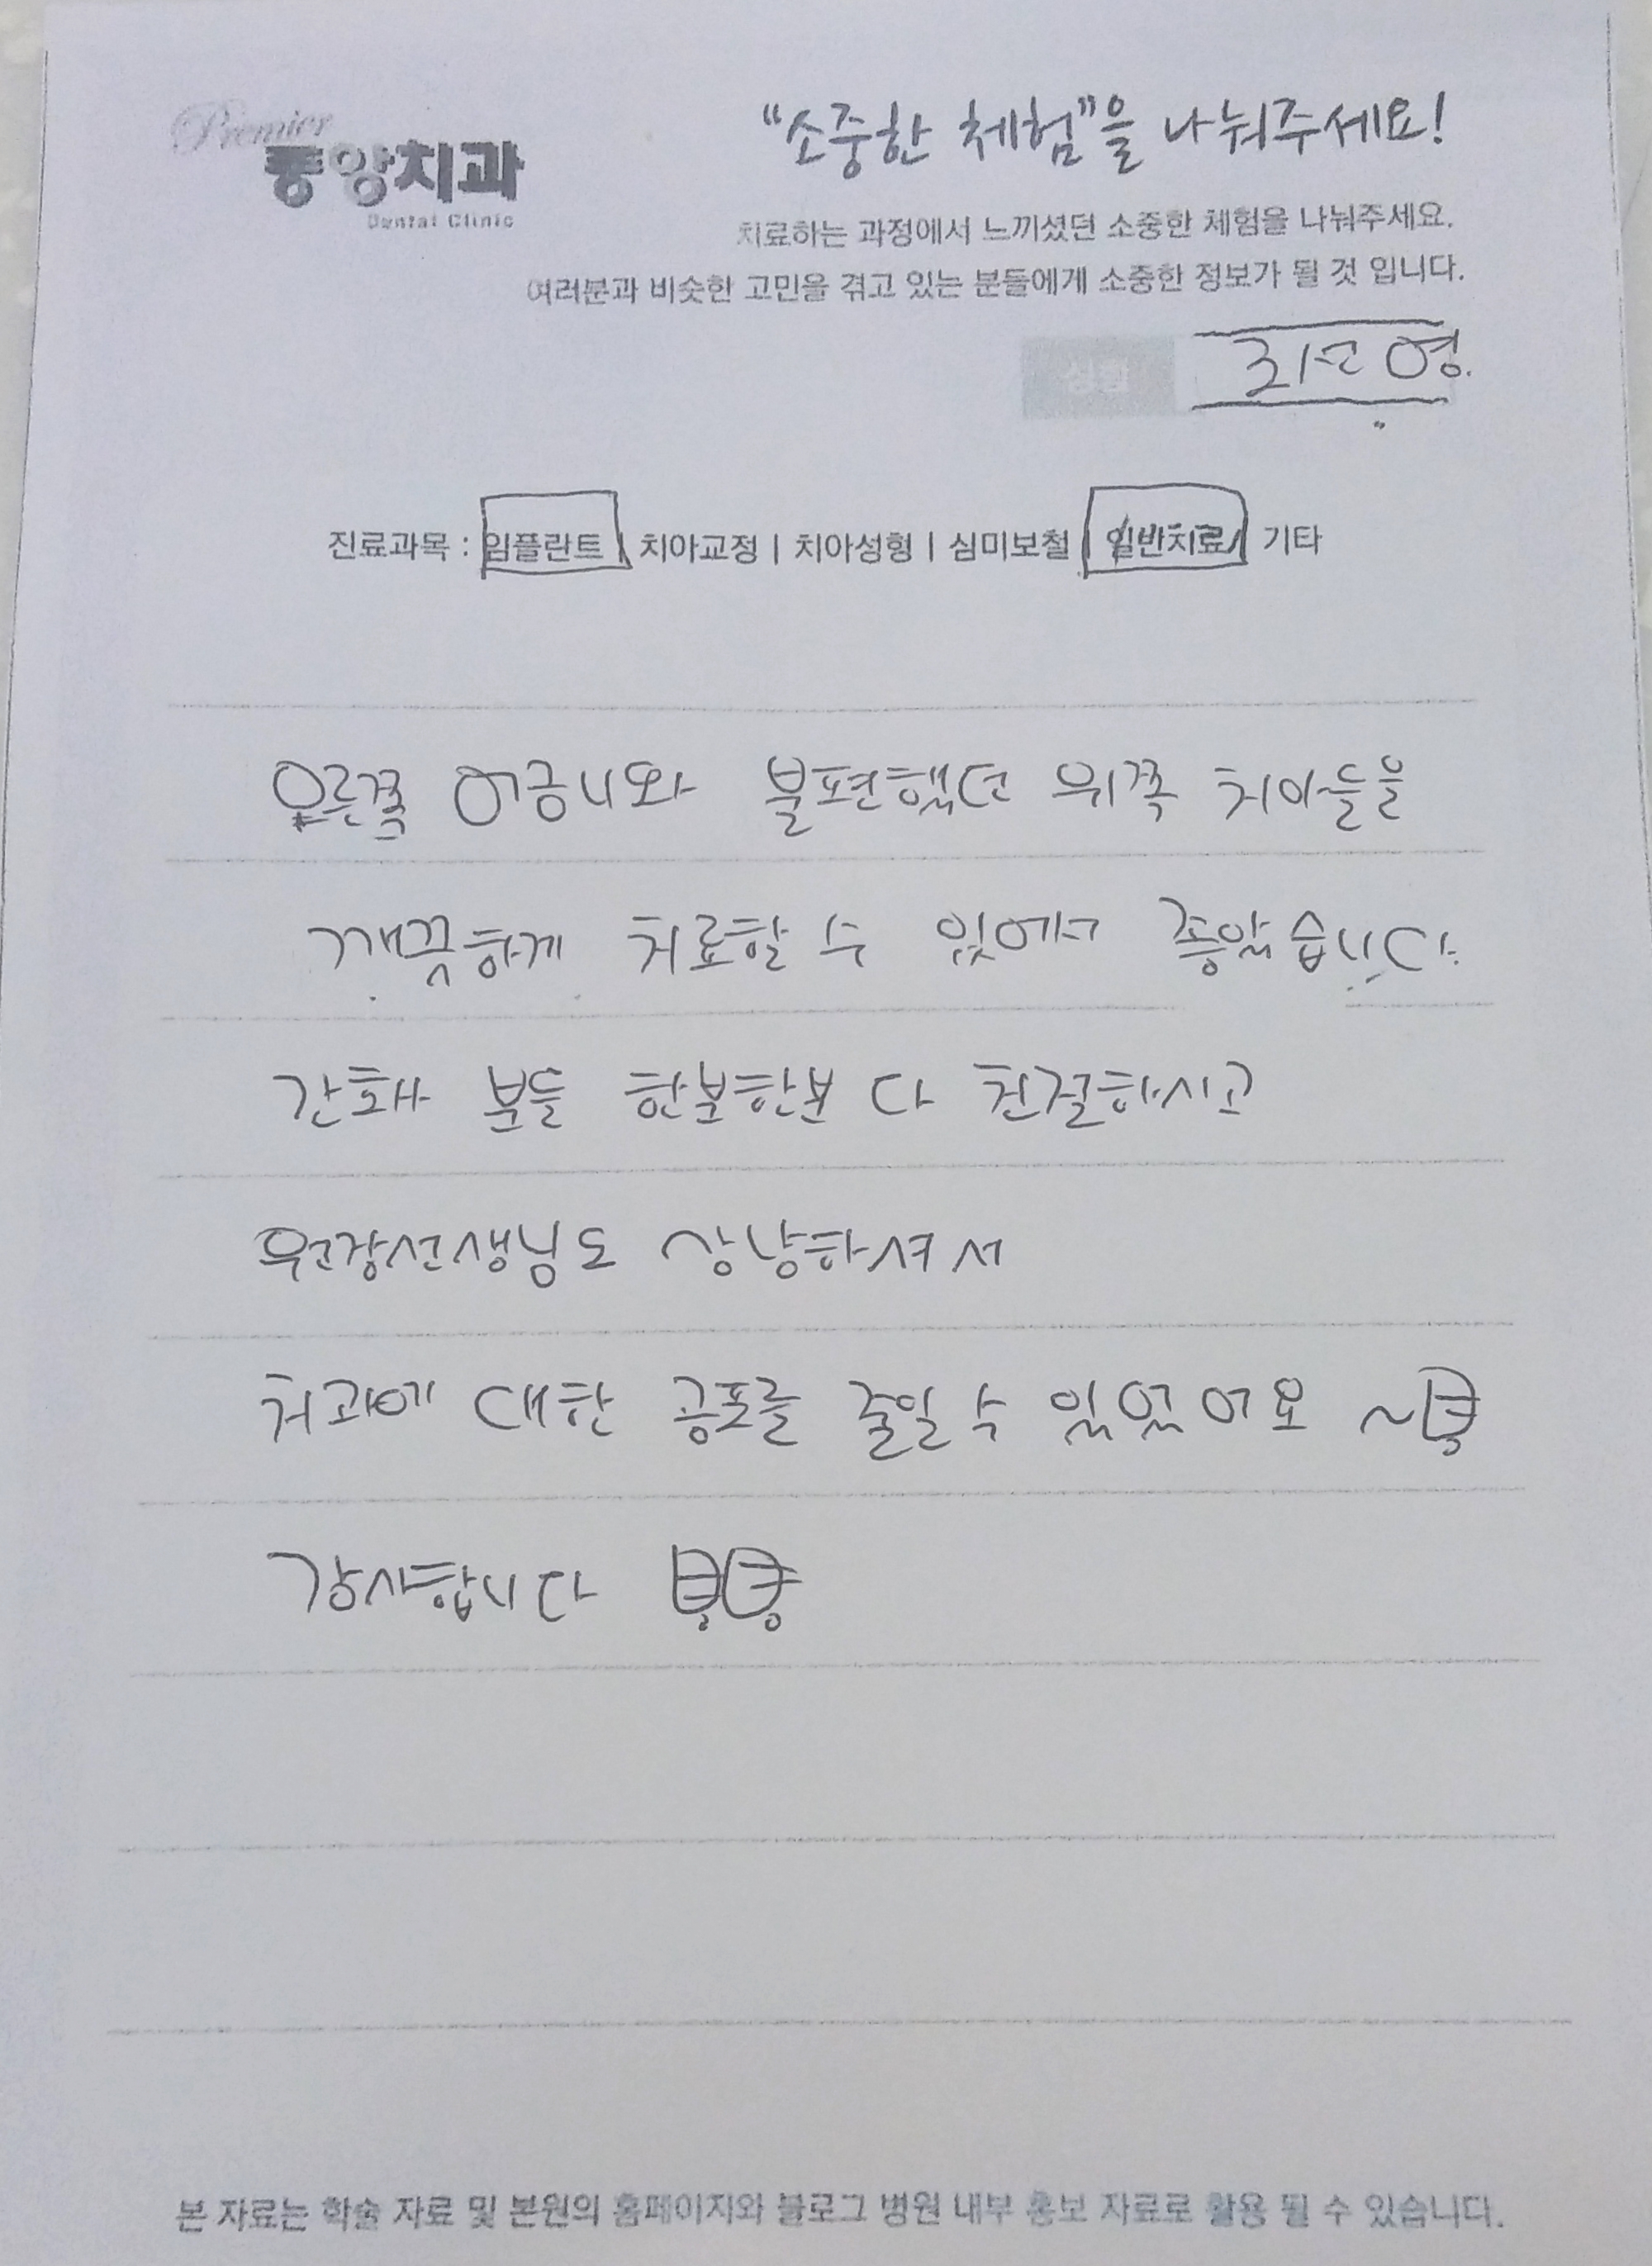 Premier
중앙치과
Dental Clinic
"소중한 체험"을 나눠주세요!
치료하는 과정에서 느끼셨던 소중한 체험을 나눠주세요.
여러분과 비슷한 고민을 겪고 있는 분들에게 소중한 정보가 될 것 입니다.
성함
진료과목 : 임플란트 | 치아교정 | 치아성형 | 심미보철 | 일반치료 | 기타
오른쪽 어금니와 불편했던 위쪽 치아들을
깨끗하게 치료할 수 있어서 좋았습니다.
간호사 분들 한분한분 다 친절하시고
원장선생님도 상냥하셔서
치과에 대한 공포를 줄일 수 있었어요 ~
감사합니다
본 자료는 학술 자료 및 본원의 홈페이지와 블로그 병원 내부 홍보 자료로 활용 될 수 있습니다.